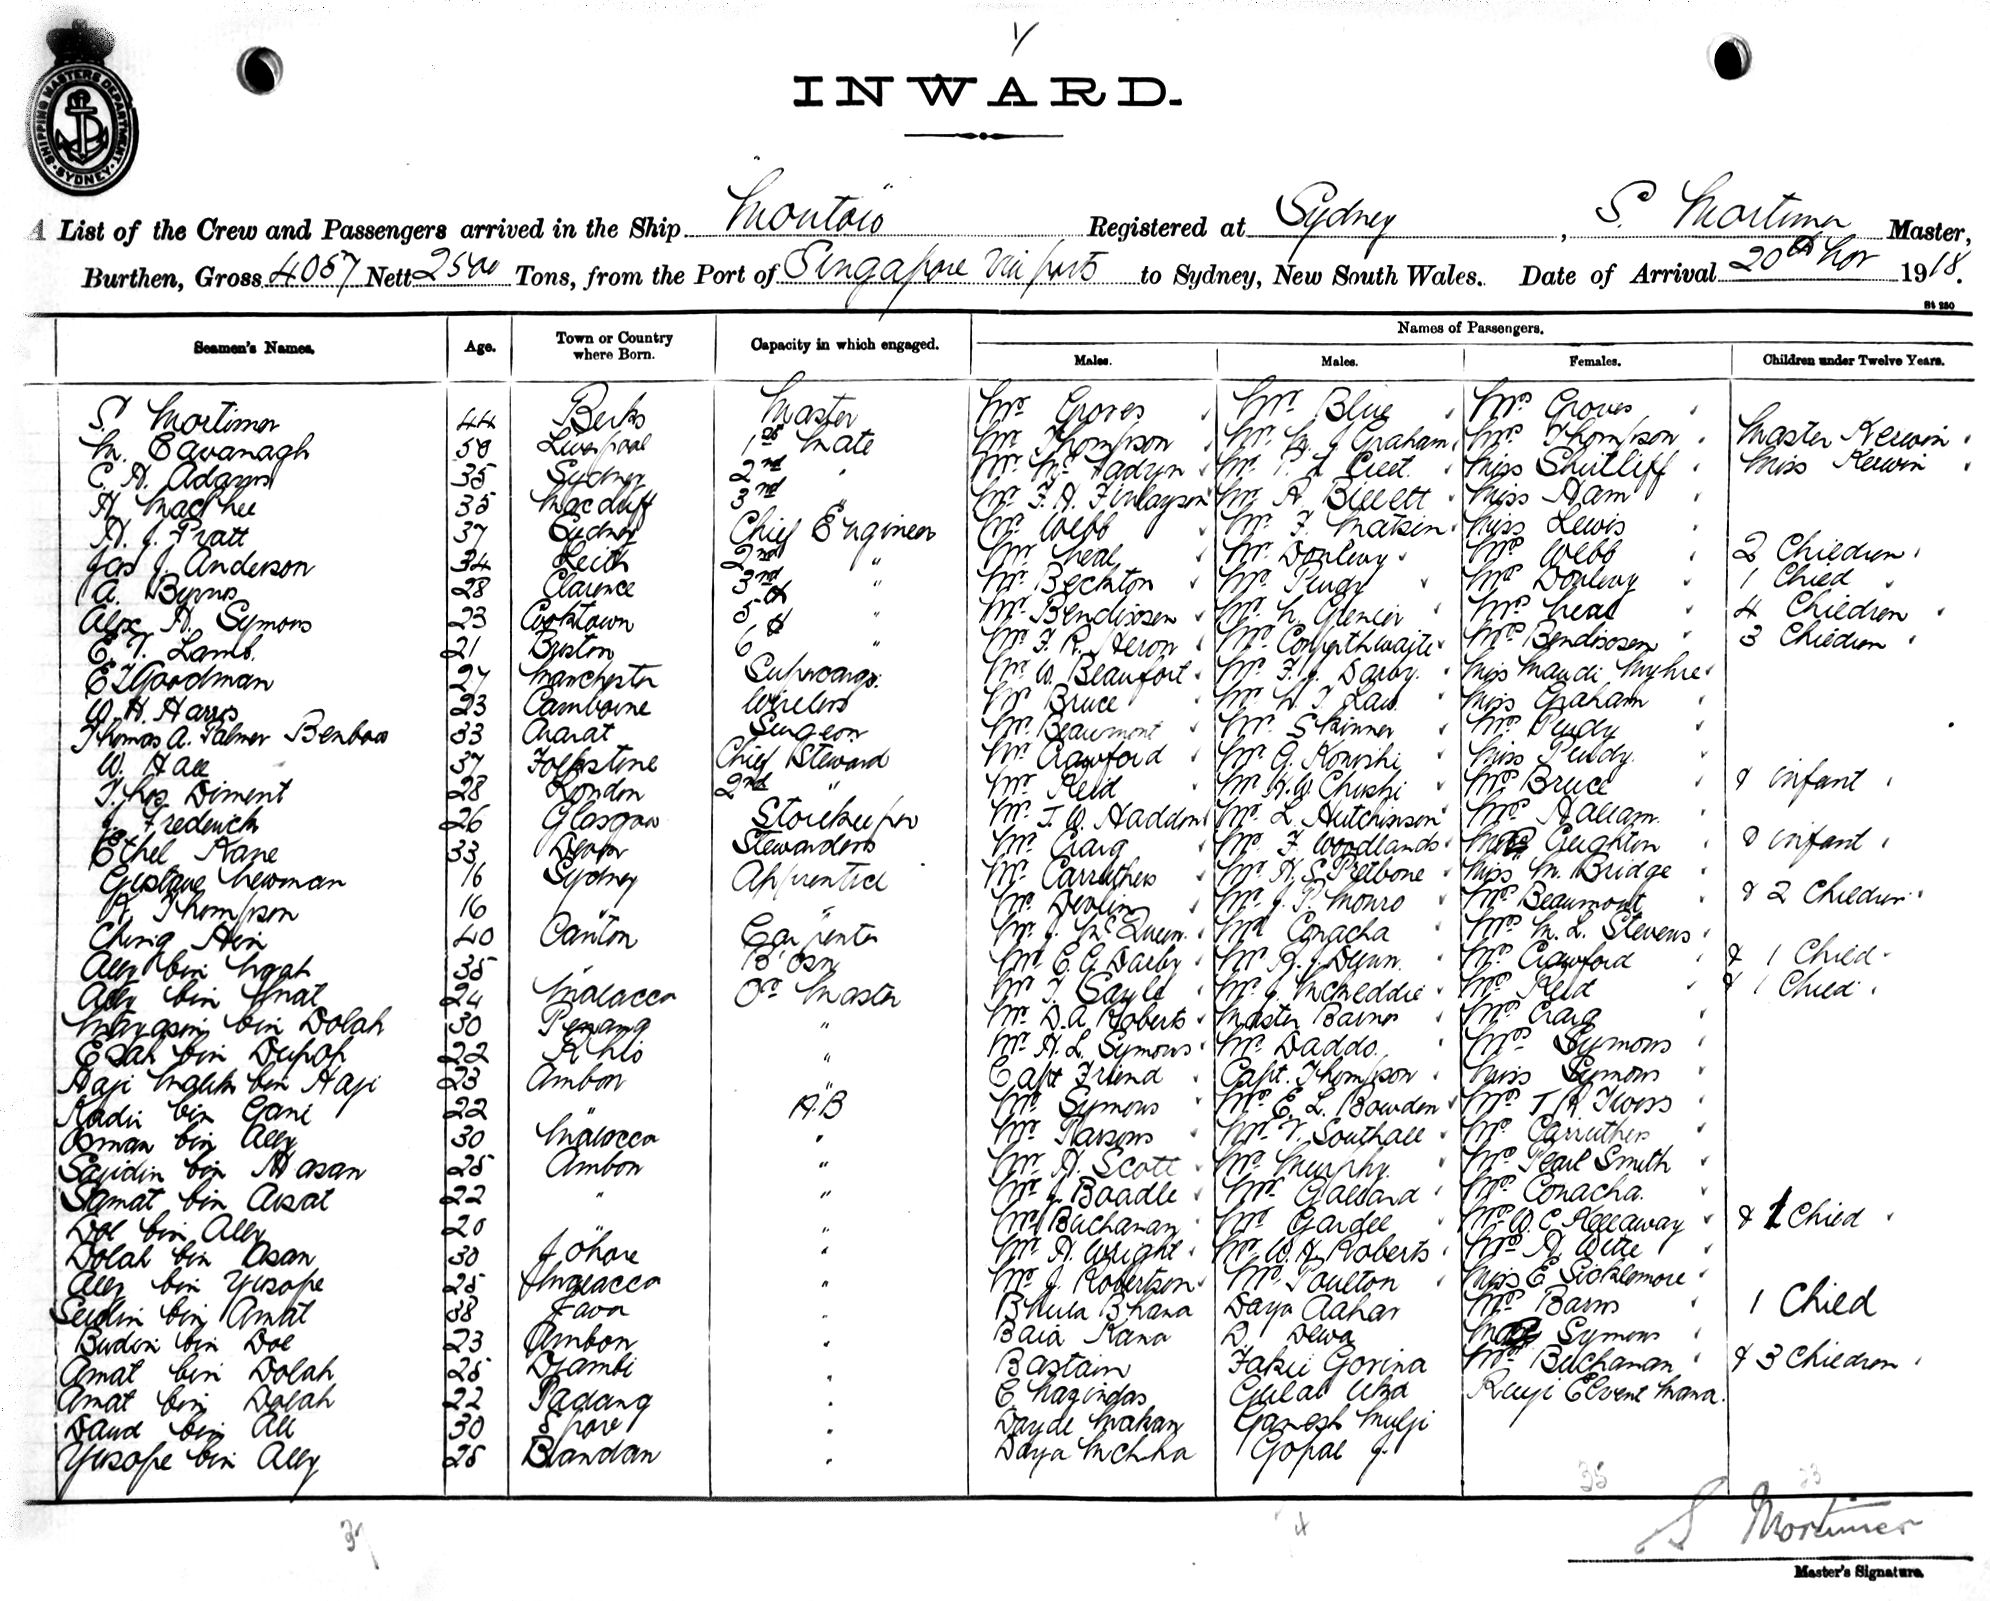 SHIPPING MASTERS DEPARTMENT
SYDNEY
INWARD.
A List of the Crew and Passengers arrived in the Ship "Montoro" Registered at Sydney, S. Mortimer Master,
Burthen, Gross 4057 Nett 2500 Tons, from the Port of Singapore via ports to Sydney, New South Wales. Date of Arrival 20th Nov 1918.
St 250
Names of Passengers.
Seamen's Names. Age. Town or Country where Born. Capacity in which engaged. Males. Males. Females. Children under Twelve Years.
S. Mortimer 44 Berks Master Mr Groves Mr Blue Mrs Groves
M. Cavanagh 50 Liverpool 1st Mate Mr Thompson Mr M. J. Graham Mrs Thompson Master Kerwin
C. A. Adams 35 Sydney 2nd " Mr Mc Fadyen Mr Miss Shitliff Miss Kerwin
A. MacPhee 35 Macduff 3rd " Mr F. A. Finlayson Mr A. Billett Miss Ham
A. J. Pratt 37 Sydney Chief Engineer Mr Webb Mr F. Matsin Miss Lewis
Jas J. Anderson 34 Leith 2nd " Mr Neal Mr Donlevy Mrs Webb 2 Children
A. Byrnes 28 Clarence 3rd " Mr Beckton Mr Purdy Mrs Donlevy 1 Child
Alex A. Symons 23 Cooktown 5th " Mr Bendixsen Mr Mrs Neal 4 Children
E. V. Lamb. 21 Buston 6th " Mr F. R. Heron Mr Mrs Bendixsen 3 Children
E J Goodman 27 Manchester Supercargo. Mr W. Beaufort Mr F. J. Darby. Miss Maudi
W. H. Harris 23 Camborne Wireless Mr Bruce Mr Law Miss Graham
Thomas A. Palmer Benbow 33 Ararat Surgeon Mr Beaumont Mr Skinner Mrs Purdy
W. Hall 37 Folkstone Chief Steward Mr Crawford Mr G. Konishi Miss Purdy.
Thos Diment 28 London 2nd " Mr Reid Mr H. W. Chushi Mrs Bruce & infant
J. Frederick 26 Glasgow Storekeeper Mr T. W. Haddon Mr L. Hutchinson Mrs Hallam.
Ethel Kane 33 Devon Stewardess Mr Craig Mr F. Woodlands Creighton & infant
Gustave Newman 16 Sydney Apprentice Mr Carruthers Mr A. S. Pelbone Miss M. Bridge
R. Thompson 16 " " Mr Devlin Mr J. P. Monro Mrs Beaumont & 2 Children
Ching Hin 40 Canton Carpenter Mr J. Mc Queen Mr Conacha Mrs M. L. Stevens
Ally bin 35 " B'osn Mr E. G. Darby Mr R. J. Dunn. Mrs Crawford & 1 Child
Ally bin 24 Malacca Qr Master Mr T. Sayle Mr J. Mrs Reid & 1 Child
bin Dolah 30 Penang " Mr D. A. Roberts Master Barnes Mrs Craig
bin 22 " Mr H. L. Symons Mr Daddo. Mrs Symons
Haji bin Haji 23 Ambon " Capt Friend Capt. Thompson Miss Symons
Kadir bin Gani 22 " A.B Mr Symons Mr E. L. Bowden Mrs T. R. Twiss
Osman bin Ally 30 Malacca " Mr Parsons Mr V. Southall Mrs Carruthers
Sajidin bin Hasan 25 Ambon " Mr A. Scott Mr Murphy. Mrs Pearl Smith
Samat bin Arsat 22 " " Mr J. Boadle Mr Galland Mrs Conacha.
Dol bin Ally 20 " " Mr Buchanan Mr Gardee Mrs W. C. Kellaway & 1 Child
Dolah bin Asan 30 Johore " Mr A. Wright Mr W. H. Roberts Mrs A. Witte
Ally bin Yusope 25 Malacca " Mr J. Robertson Mr Poulton Miss E Sicklemore
bin Amat 38 Java " Bhula Bhana Daya Aahar Mrs Barns 1 Child
Budin bin Dol 23 Ambon " Baia Kana D. Dewa Symons
Amat bin Dolah 25 Djambi " Bastain Govina Mrs Buchanan & 3 Children
Amat bin Dolah 22 Padang " Gulab Uka
Daud bin Ali 30 S'pore " Dayde Makan Ganesh Mulji
Yusope bin Ally 25 Bandan " Daya Gopal J.
35 33
37 4
S Mortimer
Master's Signature.